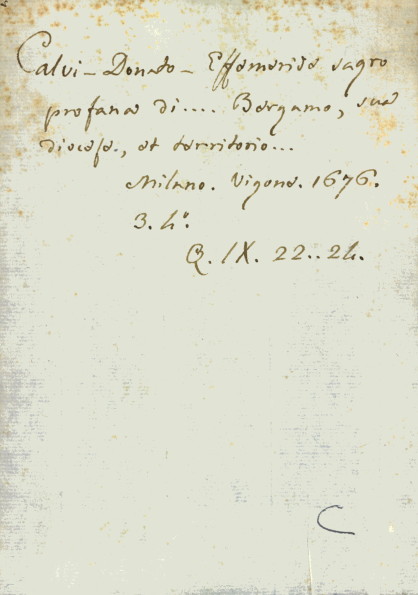 Calvi - Donato - Effemeride sagro
profana di.... Bergamo, sua
diocese, et territorio...
Milano. Vigone. 1676.
3. 4°.
Q. IX. 22..24.
C